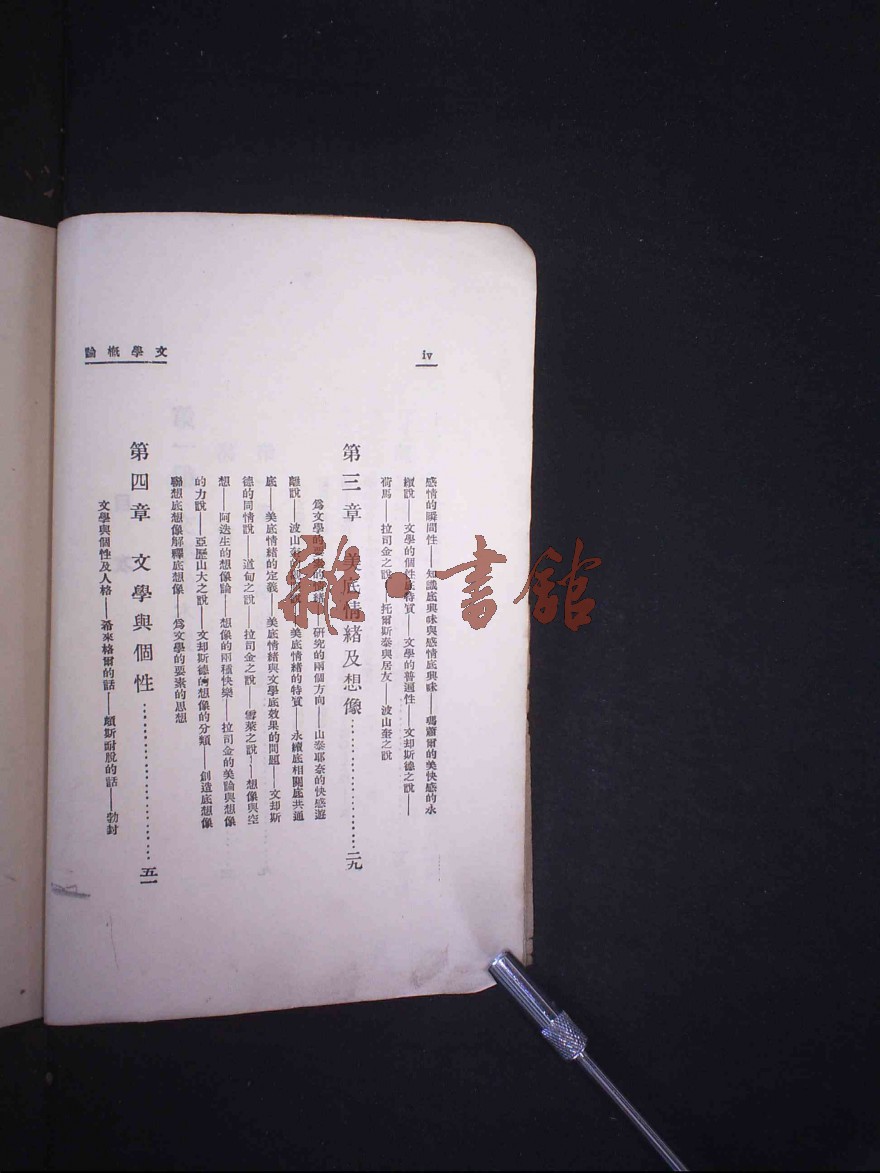 iv
文學概論
感情的瞬間性——知識底興味與感情底興味——馮蕭爾的美快感的永
續說——文學的個性底特質——文學的普遍性——文却斯德之說——
荷馬——拉司金之說——托爾斯泰與居友——波山奎之說
第三章 美底情緒及想像……………………二九
爲文學的要素的情緒——研究的兩個方向——山泰耶奈的快感遊
離說——波山奎的 說——美底情緒的特質——永續底相關底共通
底——美底情緒的定義——美底情緒與文學底效果的問題——文却斯
德的同情說——道甸之說——拉司金之說——雪萊之說——想像與空
想——阿迭生的想像論——想像的兩種快樂——拉司金的美論與想像
的力說——亞歷山大之說——文却斯德的想像的分類——創造底想像
聯想底想像解釋底想像——爲文學的要素的思想
第四章 文學與個性……………………五一
文學與個性及人格——希來格爾的話——頗斯耐脫的話——勃封
雜·書館